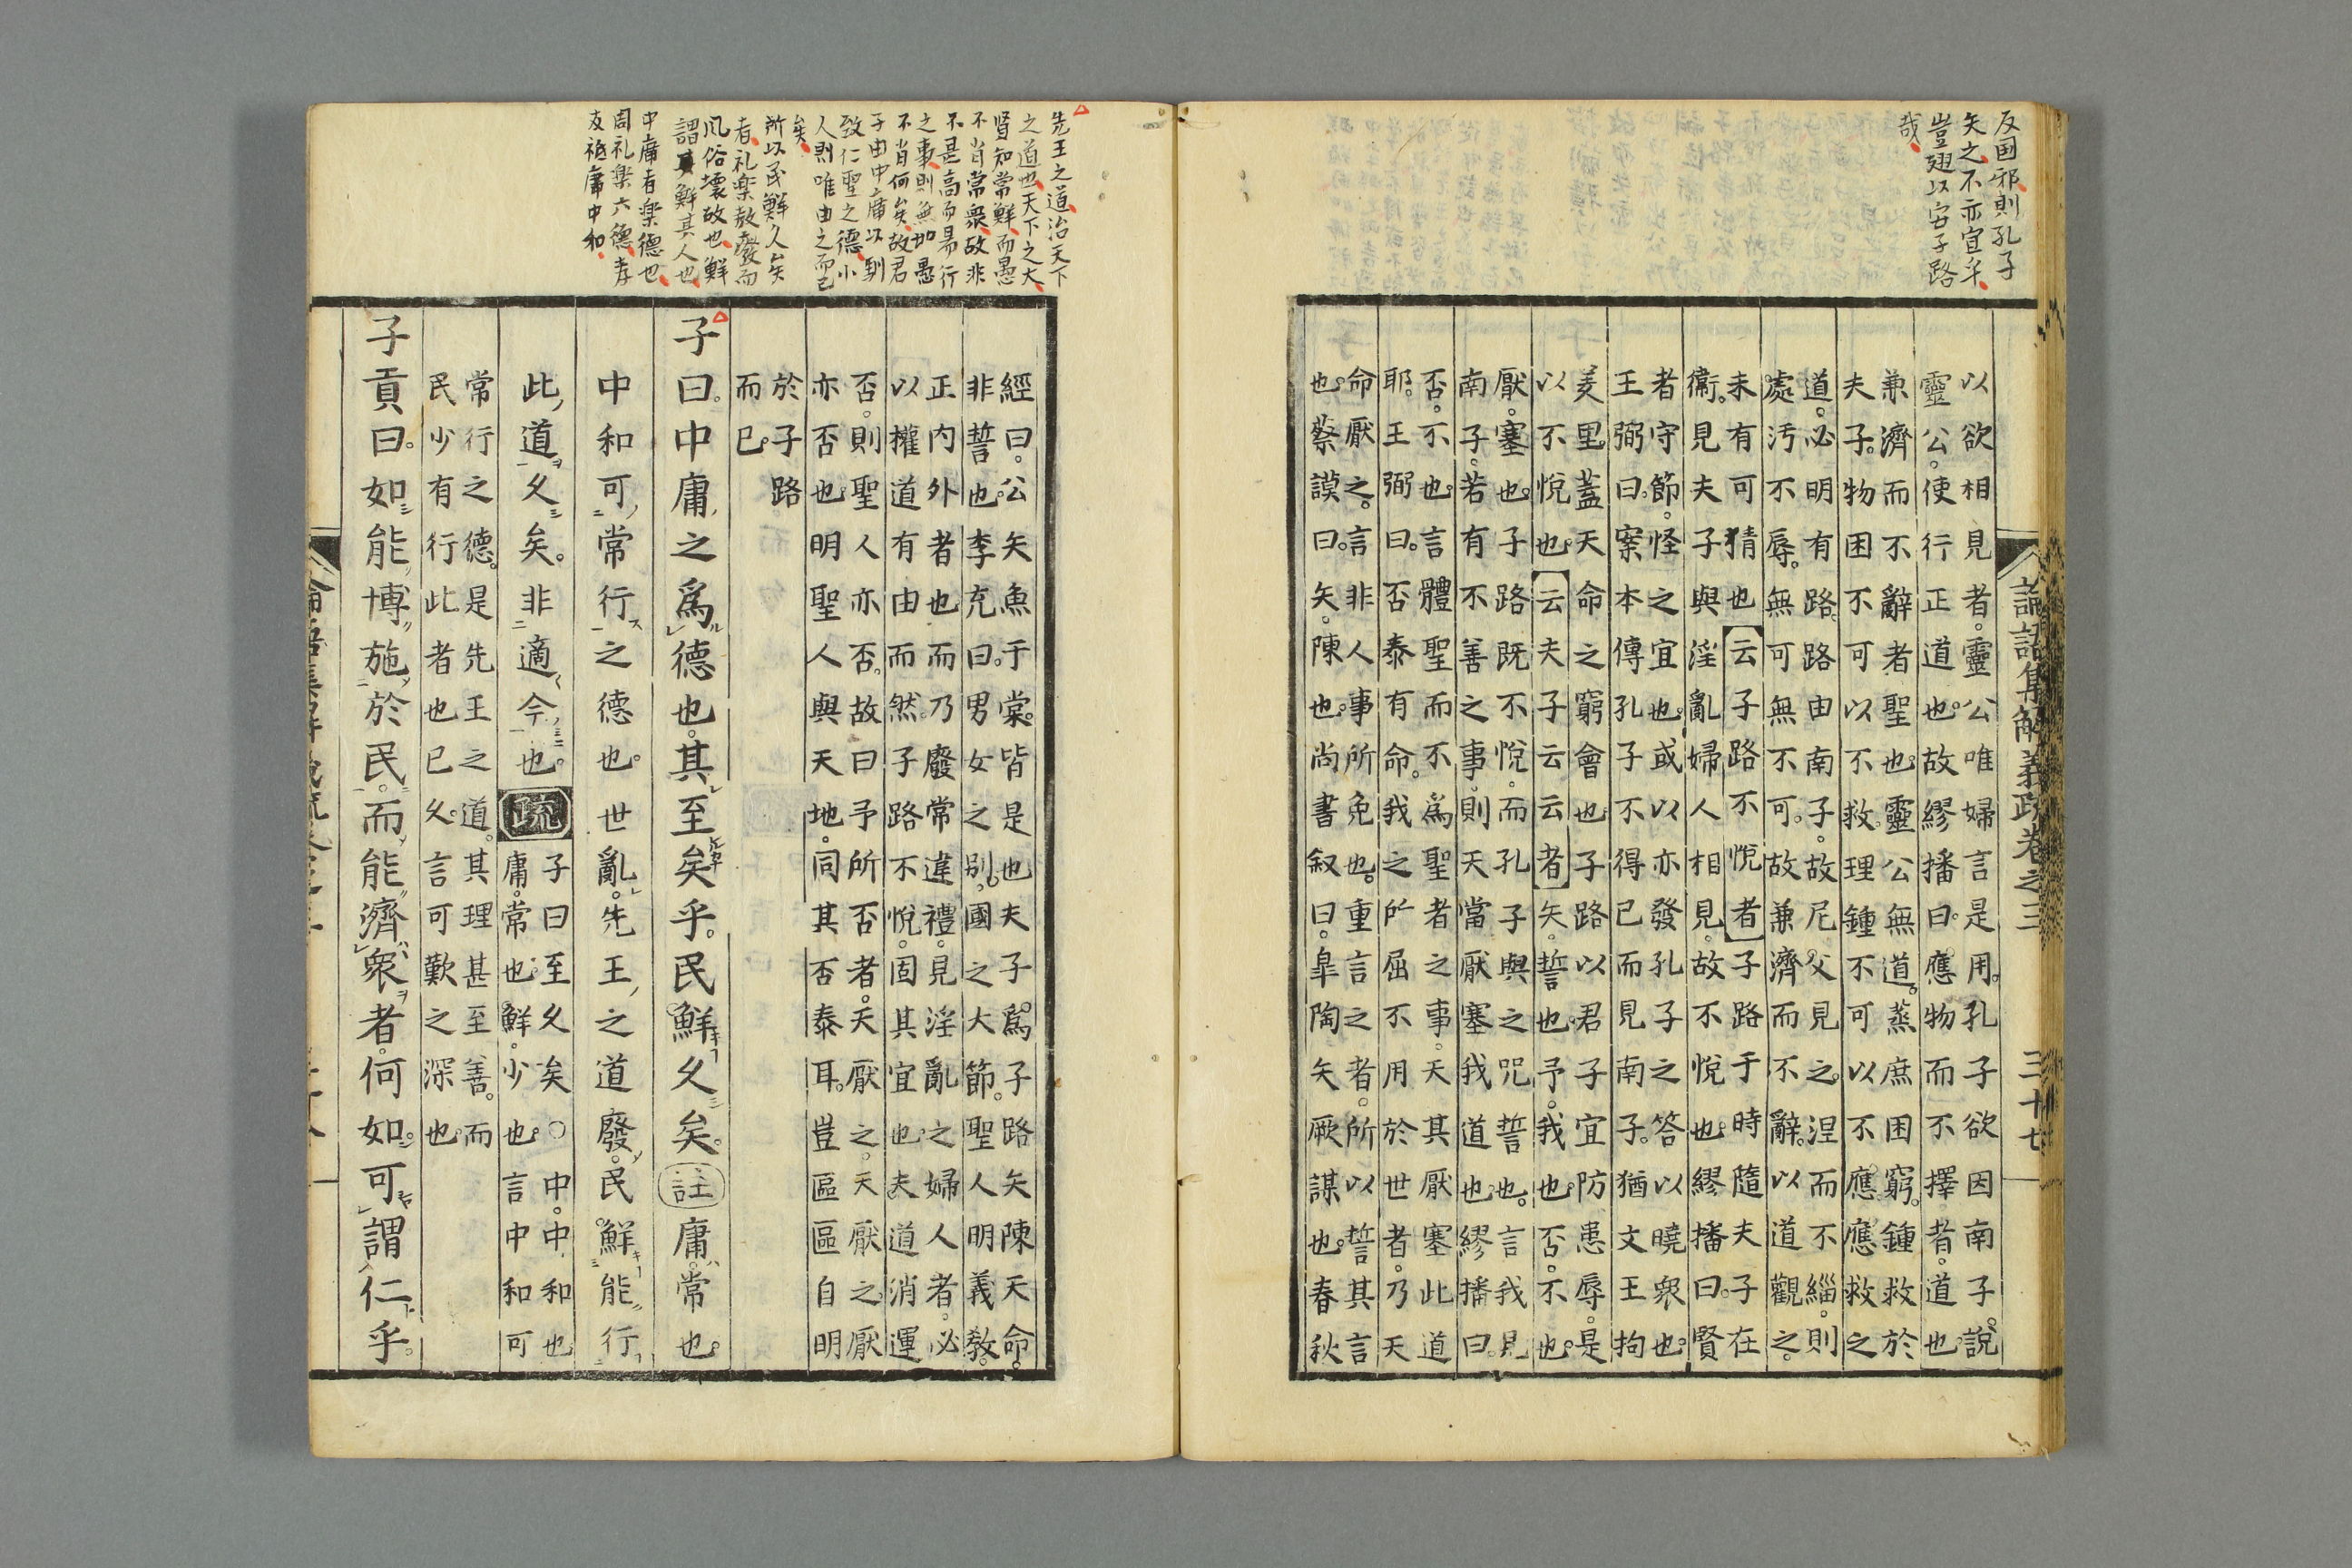 反国邪則孔子
矢之不亦宜乎
豈翅以安子路
哉
論語集解義疏卷之三　三十七
以欲相見者。靈公唯婦言是用。孔子欲因南子。說
靈公。使行正道也。故繆播曰。應物而不擇者。道也
兼濟而不辭者聖也。靈公無道。蒸庶困窮。鍾救於
夫子。物困不可以不救。理鍾不可以不應。應救之
道。必明有路。路由南子。故尼父見之。涅而不緇。則
處汚不辱。無可無不可。故兼濟而不辭。以道觀之。
未有可猜也[云子路不悅者]子路于時隨夫子在
衞。見夫子與淫亂婦人相見。故不悅也。繆播曰。賢
者守節。怪之宜也。或以亦發孔子之答以曉衆也。
王弼曰。案本傳孔子不得已而見南子。猶文王拘
羑里蓋天命之窮會也。子路以君子宜防患辱。是
以不悅也。[云夫子云云者]矢。誓也。予。我也。否。不也。
厭。塞也。子路既不悅。而孔子與之咒誓也。言我見
南子。若有不善之事。則天當厭塞我道也。繆播曰。
否。不也。言體聖而不爲聖者之事。天其厭塞此道
耶。王弼曰。否泰有命。我之所屈不用於世者。乃天
命厭之。言非人事所免也。重言之者。所以誓其言
也。蔡謨曰。矢。陳也。尚書叙曰。皐陶矢厥謀也。春秋
先王之道治天下
之道也天下之大
賢知常鮮而愚
不肖常衆故非
不是高而易行
之事則無如愚
不肖何矣故君
子由中庸以馴
致仁聖之德小
人則唯由之而已
矣
所以民鮮久矣
者礼楽敖廢而
風俗壊故也鮮
謂鮮其人也
中庸者楽德也
周礼楽六德孝
友祗庸中和
經曰。公矢魚于棠。皆是也夫子爲子路矢陳天命。
非誓也。李充曰。男女之別。國之大節。聖人明義敎。
正內外者也而乃廢常違禮。見淫亂之婦人者。必
以權道有由而然。子路不悅。固其宜也。夫道消運
否。則聖人亦否。故曰予所否者。天厭之。天厭之。厭
亦否也。明聖人與天地。同其否泰耳。豈區區自明
於子路
而已。
子曰。中庸之爲德也。其至矣乎。民鮮久矣。註庸。常也。
中和可常行之德也。世亂。先王之道廢。民鮮能行
此道久矣。非適今也。
疏
子曰至久矣〇中。中和也
庸。常也。鮮。少也。言中和可
常行之德。是先王之道。其理甚至善。而
民少有行此者也已久。言可歎之深也。
子貢曰。如能博施於民。而能濟衆者。何如。可謂仁乎。